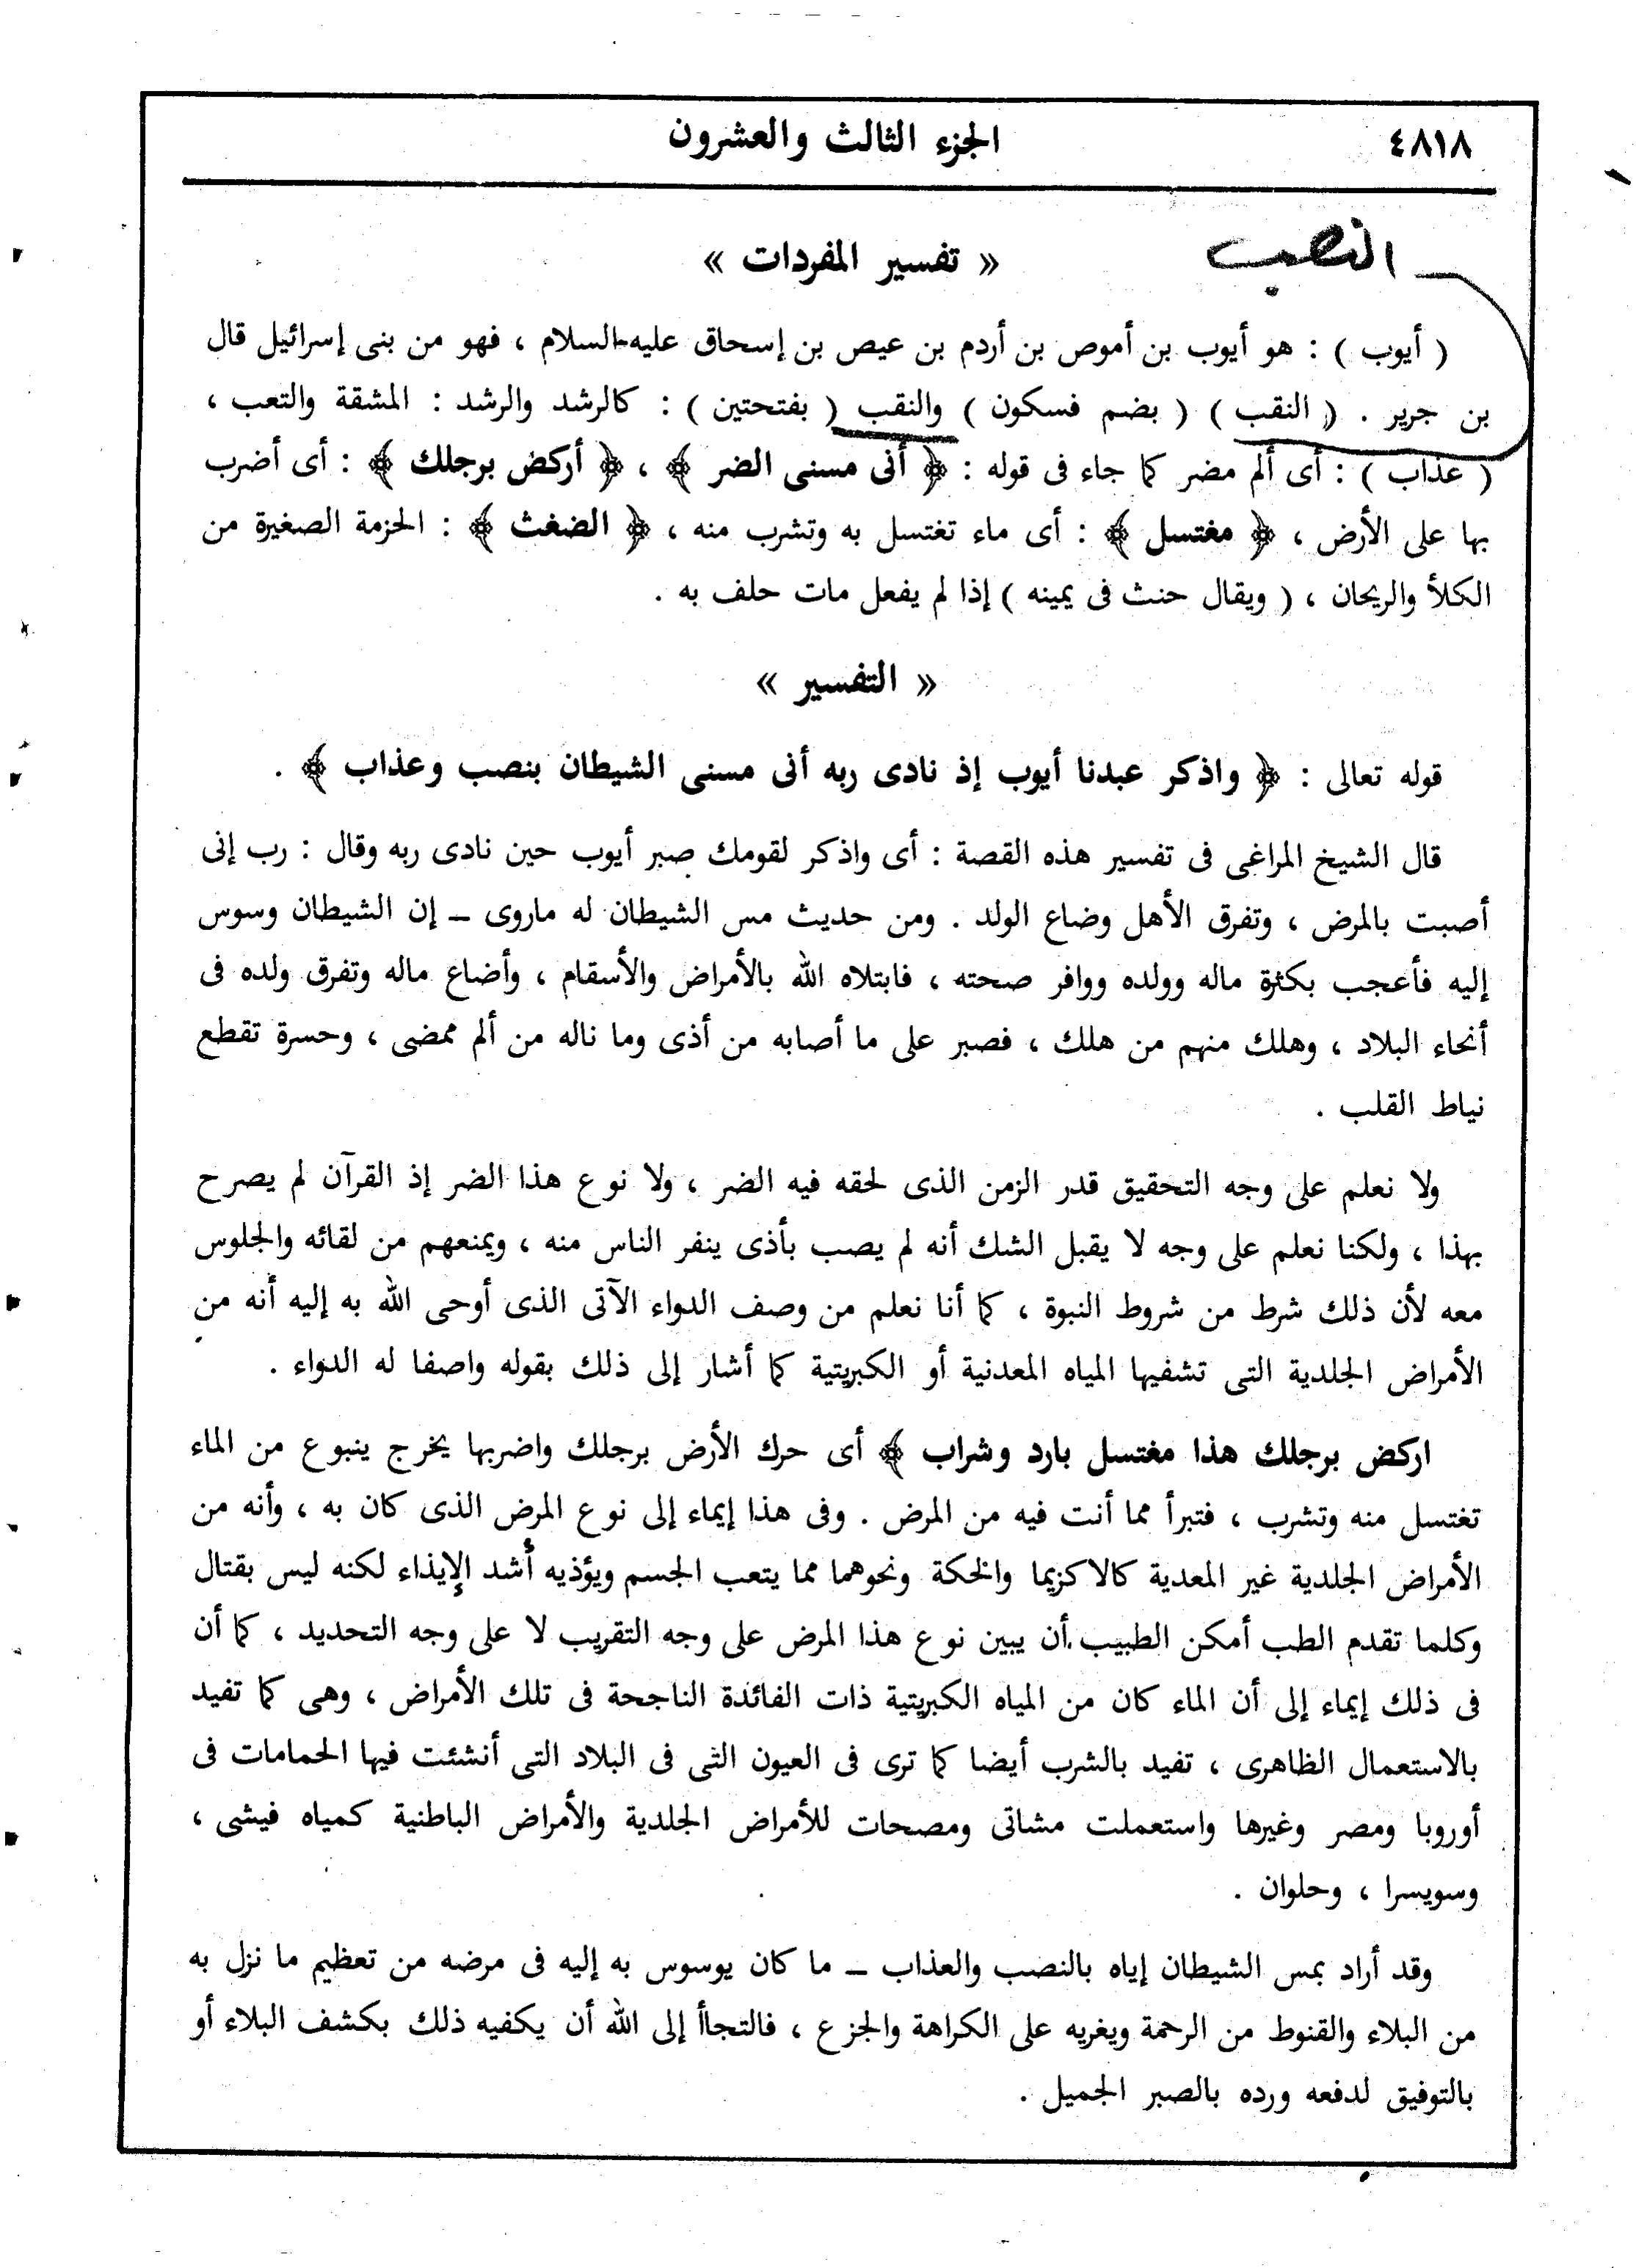 ٤٨١٨ الجزء الثالث والعشرون
النصب
« تفسير المفردات »
( أيوب ) : هو أيوب بن أموص بن أردم بن عيص بن إسحاق عليه السلام ، فهو من بنى إسرائيل قال
بن جرير . ( النقب ) ( بضم فسكون ) والنقب ( بفتحتين ) : كالرشد والرشد : المشقة والتعب ،
( عذاب ) : أى ألم مضر كما جاء فى قوله : ﴿ أنى مسنى الضر ﴾ ، ﴿ أركض برجلك ﴾ : أى أضرب
بها على الأرض ، ﴿ مغتسل ﴾ : أى ماء تغتسل به وتشرب منه ، ﴿ الضغث ﴾ : الحزمة الصغيرة من
الكلأ والريحان ، ( ويقال حنث فى يمينه ) إذا لم يفعل مات حلف به .
« التفسير »
قوله تعالى : ﴿ واذكر عبدنا أيوب إذ نادى ربه أنى مسنى الشيطان بنصب وعذاب ﴾ .
قال الشيخ المراغى فى تفسير هذه القصة : أى واذكر لقومك صبر أيوب حين نادى ربه وقال : رب إنى
أصبت بالمرض ، وتفرق الأهل وضاع الولد . ومن حديث مس الشيطان له ماروى ــ إن الشيطان وسوس
إليه فأعجب بكثرة ماله وولده ووافر صحته ، فابتلاه الله بالأمراض والأسقام ، وأضاع ماله وتفرق ولده فى
أنحاء البلاد ، وهلك منهم من هلك ، فصبر على ما أصابه من أذى وما ناله من ألم ممضى ، وحسرة تقطع
نياط القلب .
ولا نعلم على وجه التحقيق قدر الزمن الذى لحقه فيه الضر ، ولا نوع هذا الضر إذ القرآن لم يصرح
بهذا ، ولكنا نعلم على وجه لا يقبل الشك أنه لم يصب بأذى ينفر الناس منه ، ويمنعهم من لقائه والجلوس
معه لأن ذلك شرط من شروط النبوة ، كما أنا نعلم من وصف الدواء الآتى الذى أوحى الله به إليه أنه من
الأمراض الجلدية التى تشفيها المياه المعدنية أو الكبريتية كما أشار إلى ذلك بقوله واصفا له الدواء .
اركض برجلك هذا مغتسل بارد وشراب ﴾ أى حرك الأرض برجلك واضربها يخرج ينبوع من الماء
تغتسل منه وتشرب ، فتبرأ مما أنت فيه من المرض . وفى هذا إيماء إلى نوع المرض الذى كان به ، وأنه من
الأمراض الجلدية غير المعدية كالاكزيما والحكة ونحوهما مما يتعب الجسم ويؤذيه أشد الإيذاء لكنه ليس بقتال
وكلما تقدم الطب أمكن الطبيب أن يبين نوع هذا المرض على وجه التقريب لا على وجه التحديد ، كما أن
فى ذلك إيماء إلى أن الماء كان من المياه الكبريتية ذات الفائدة الناجحة فى تلك الأمراض ، وهى كما تفيد
بالاستعمال الظاهرى ، تفيد بالشرب أيضا كما ترى فى العيون التى فى البلاد التى أنشئت فيها الحمامات فى
أوروبا ومصر وغيرها واستعملت مشاتى ومصحات للأمراض الجلدية والأمراض الباطنية كمياه فيشى ،
وسويسرا ، وحلوان .
وقد أراد بمس الشيطان إياه بالنصب والعذاب ــ ما كان يوسوس به إليه فى مرضه من تعظيم ما نزل به
من البلاء والقنوط من الرحمة ويغريه على الكراهة والجزع ، فالتجاأ إلى الله أن يكفيه ذلك بكشف البلاء أو
بالتوفيق لدفعه ورده بالصبر الجميل .